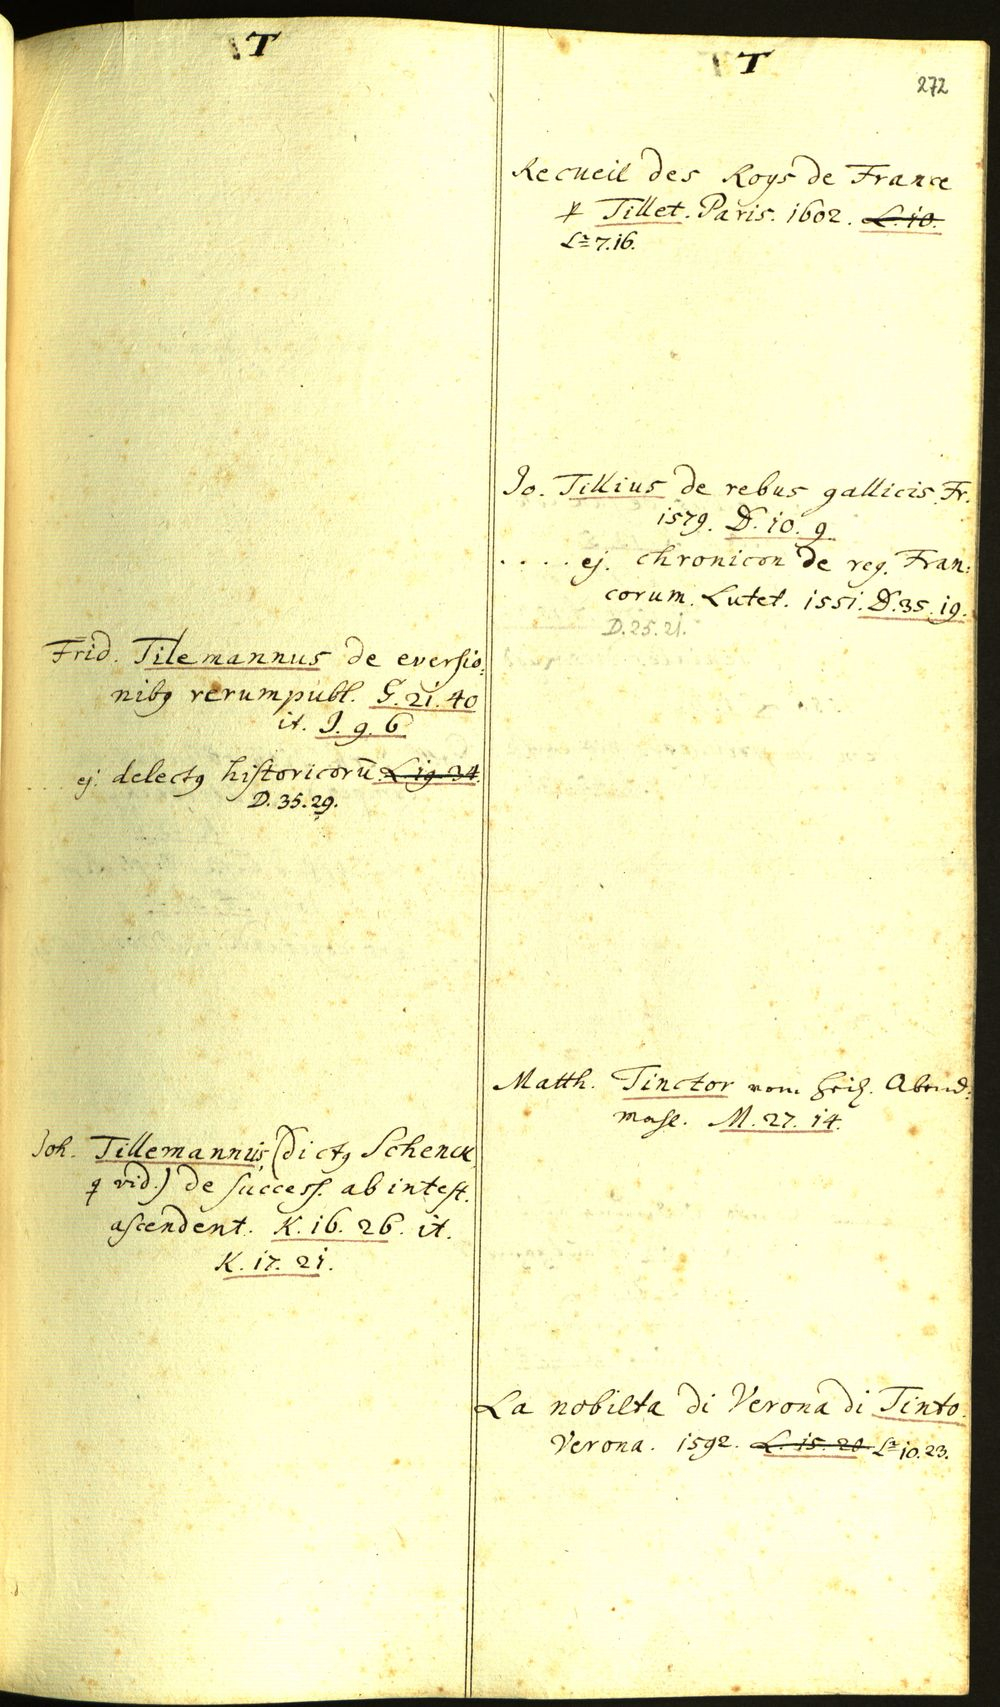 T
Frid. Tilemannus de eversio:
nibꝯ rerumpubl. G. 21. 40
it. J. 9. 6
. . . ej. delectꝯ historicorū. L. 19. 34.
D. 35. 29.
Joh. Tillemannus, (dictꝯ Schenck
q vid.) de success. ab intest.
ascendent. K. 16. 26. it.
K. 17. 21.
T
272
Recueil des Roys de France
p Tillet. Paris. 1602. L. 10.
La 7. 16.
Jo. Tillius de rebus gallicis. Fr.
1579. D. 10. 9
. . . . . ej. chronicon de reg. Fran:
corum. Lutet. 1551. D. 35. 19.
D. 25. 21.
Matth. Tinctor vom heil. Abend:
mahl. M. 27. 14.
La nobilta di Verona di Tinto.
Verona. 1592. L. 15. 20 La 10. 23.